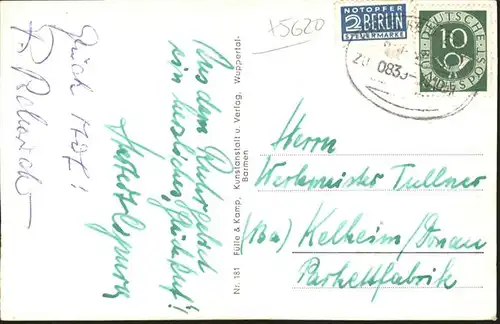 +5620
NOTOPFER
2 BERLIN
STEUERMARKE
DEUTSCHE
10
BUNDESPOST
20 083
Aus dem Ruhrgebiet
ein herzliches „Glückauf“!
Glück Auf!
Nr. 181 Fülle & Kamp, Kunstanstalt u. Verlag, Wuppertal-
Barmen
Herrn
Werkmeister Tullner
(13a) Kelheim/Donau
Parkettfabrik